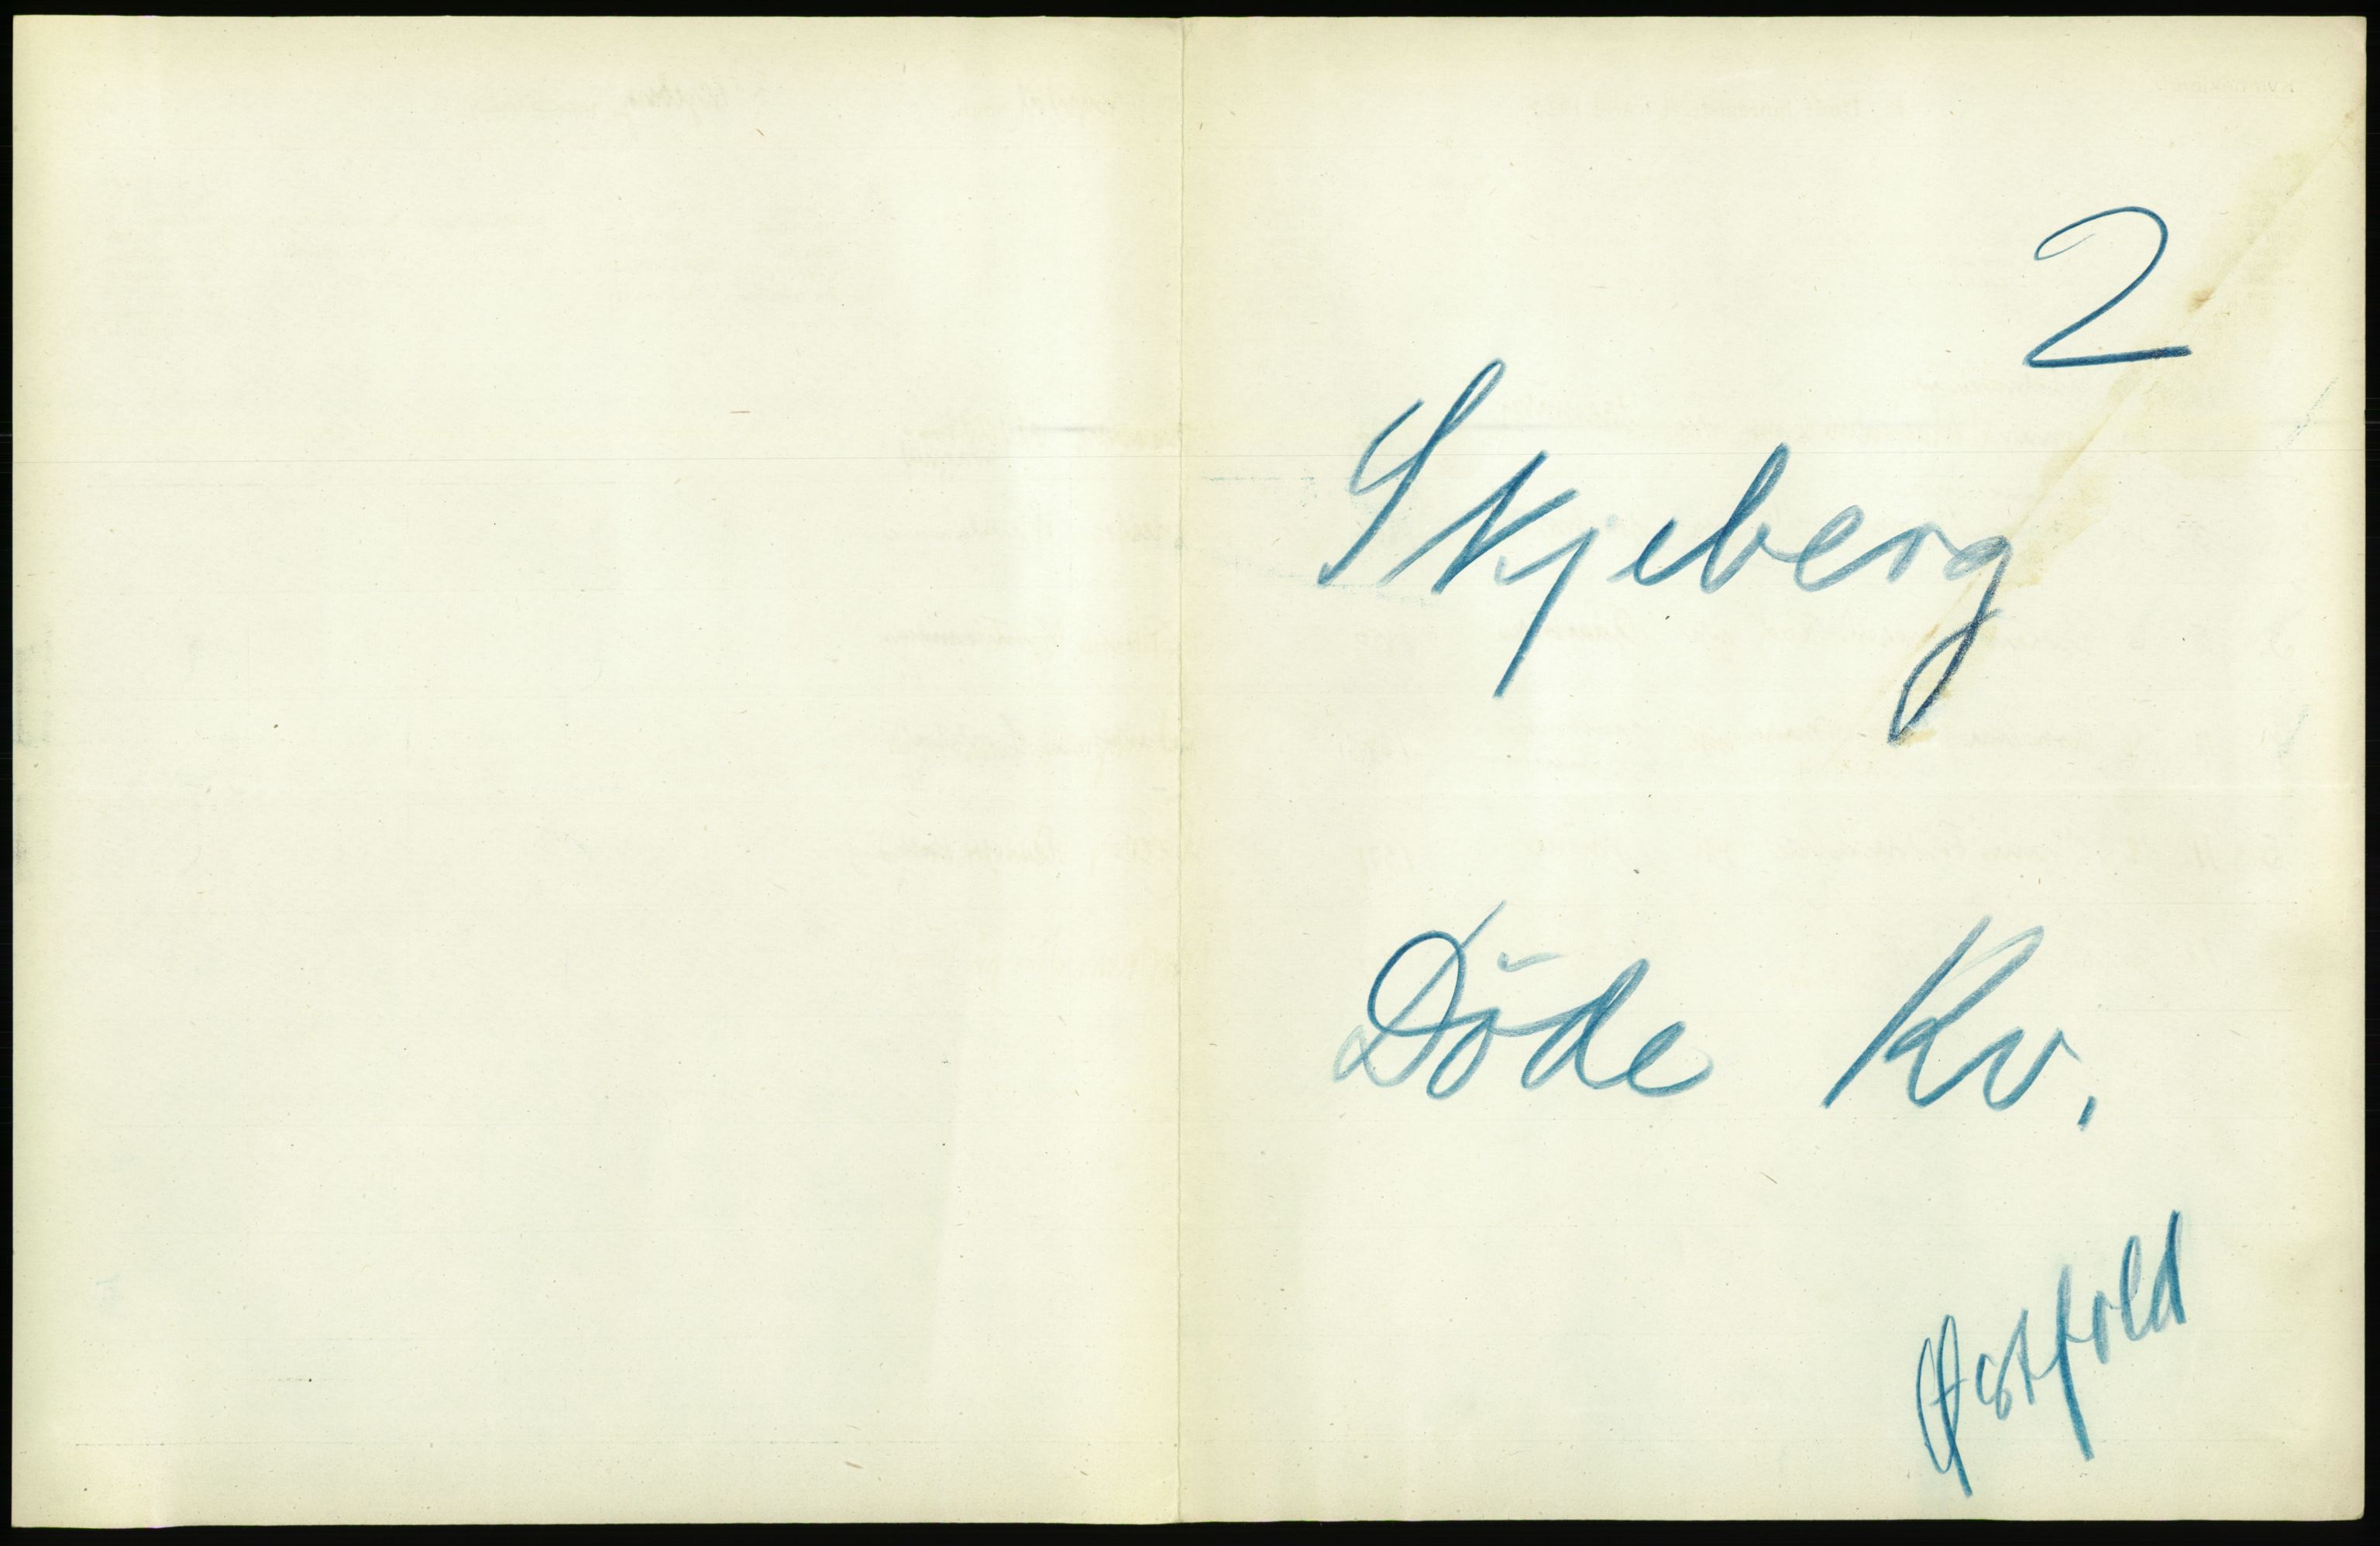 2
Skjeberg
Døde Kv.
Østfold